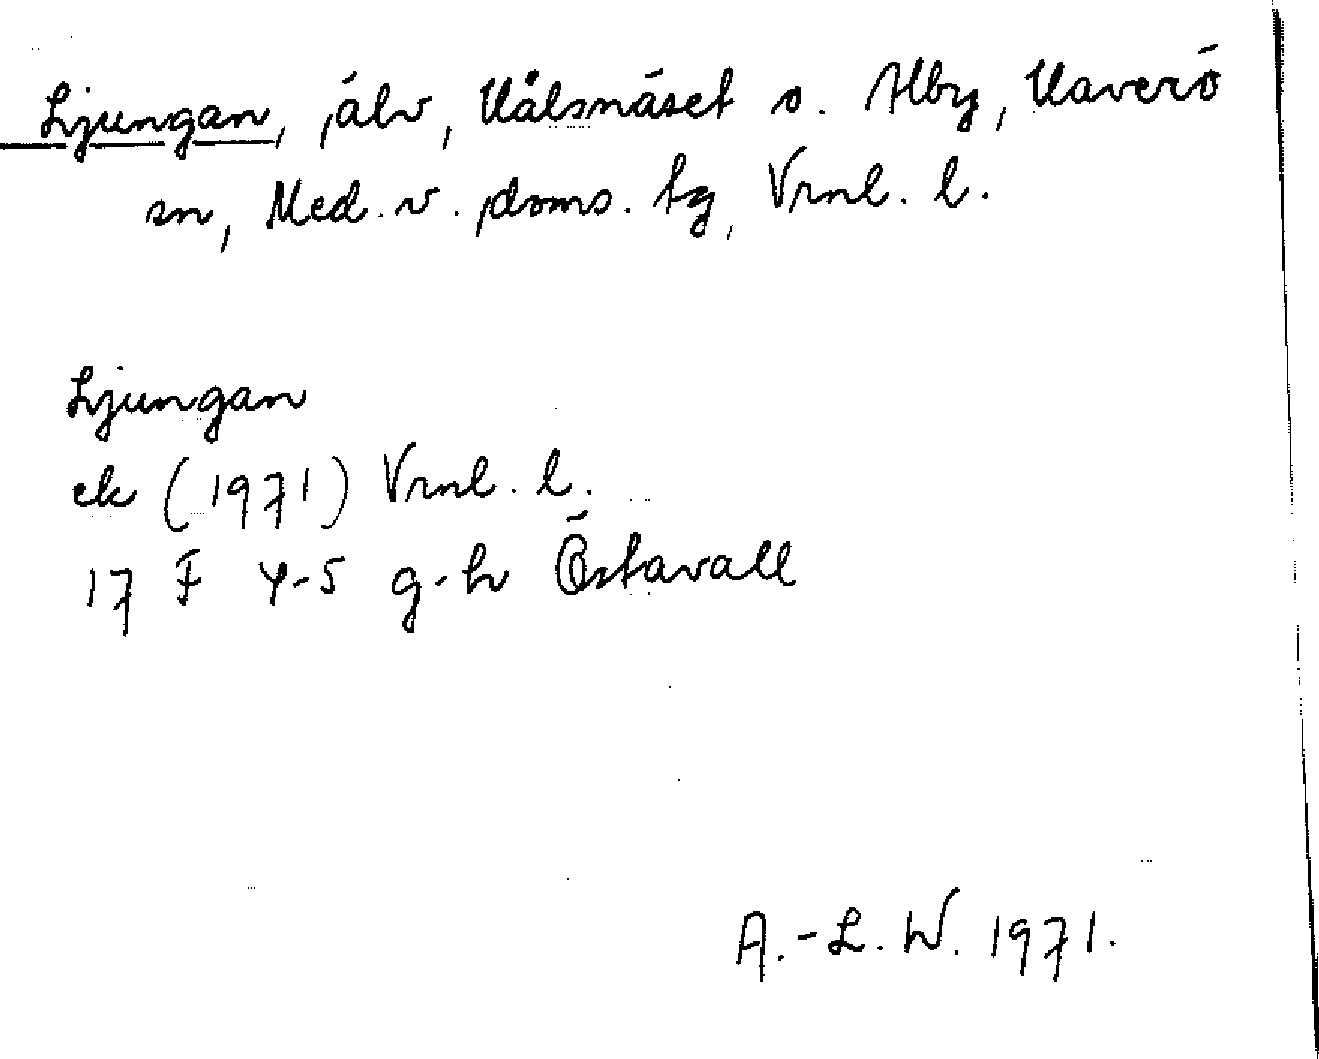 Ljungan, älv, Hålsnäset s. Alby, Haverö
sn, Med. v. doms. tg, Vrnl. l.
Ljungan
ek (1971) Vrnl. l.
17 F 4-5 g-h Östavall
A.-L. W. 1971.